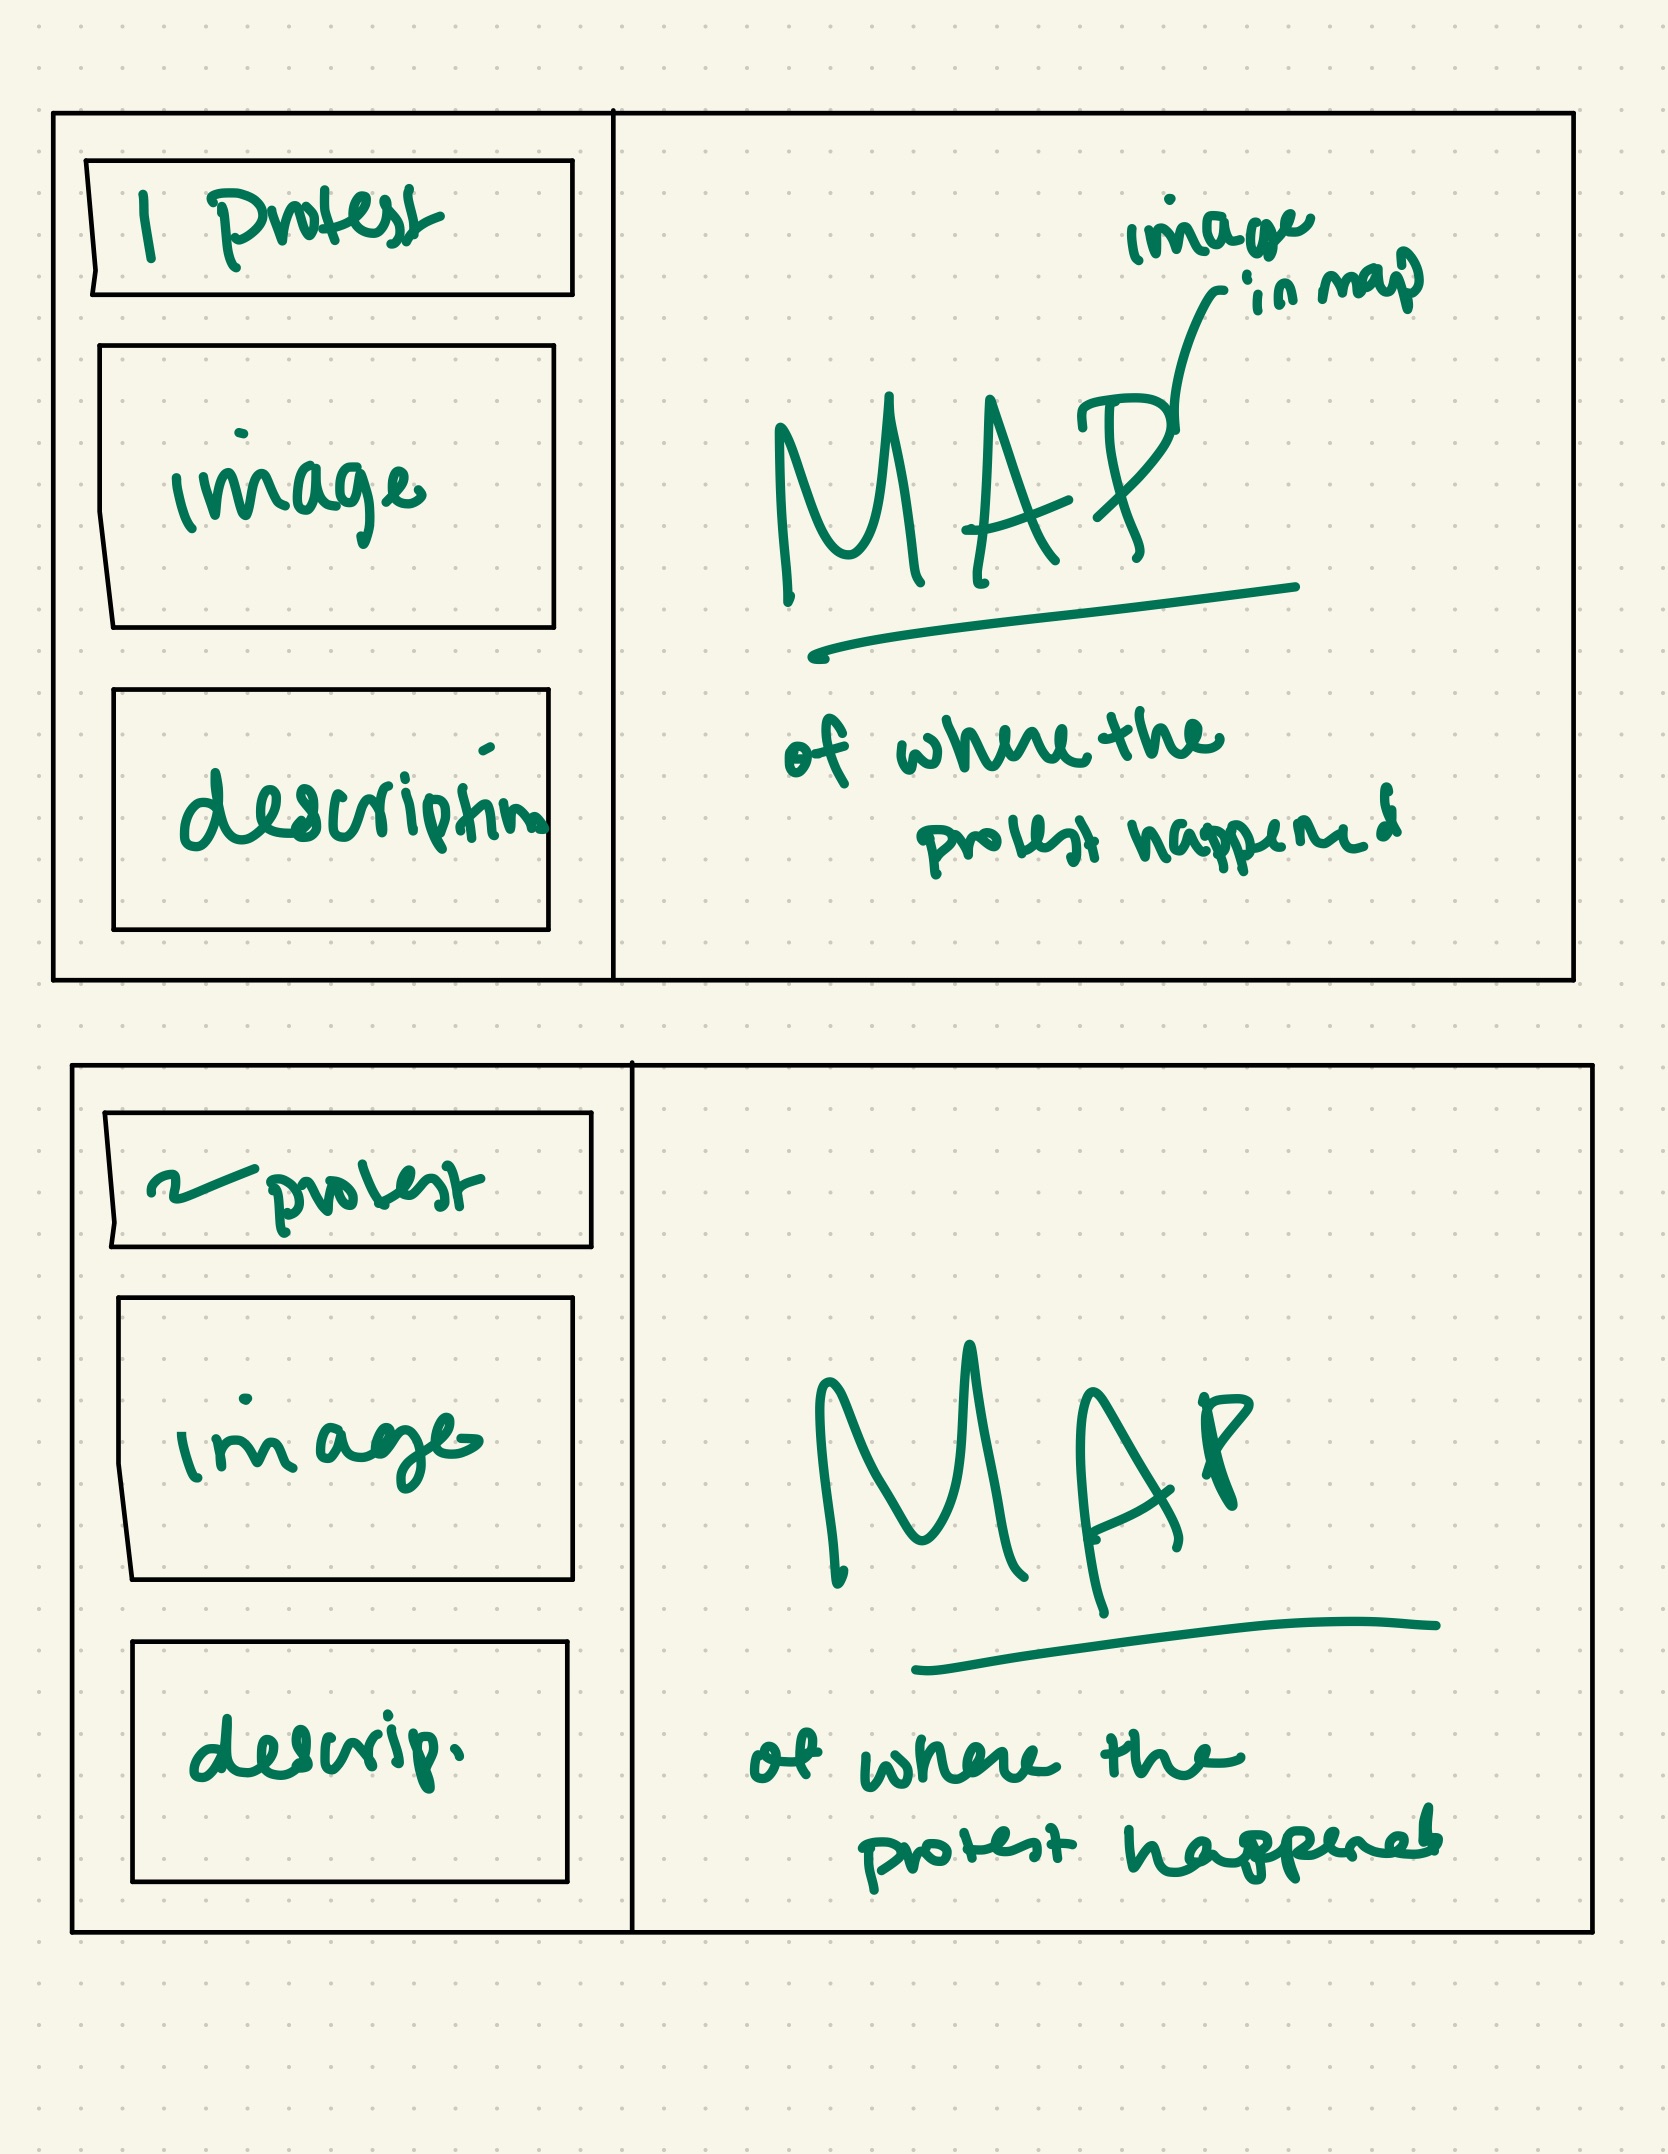 1 Protest
image
description
image
in map
MAP
of where the
protest happened
2 protest
image
descrip.
MAP
of where the
protest happened